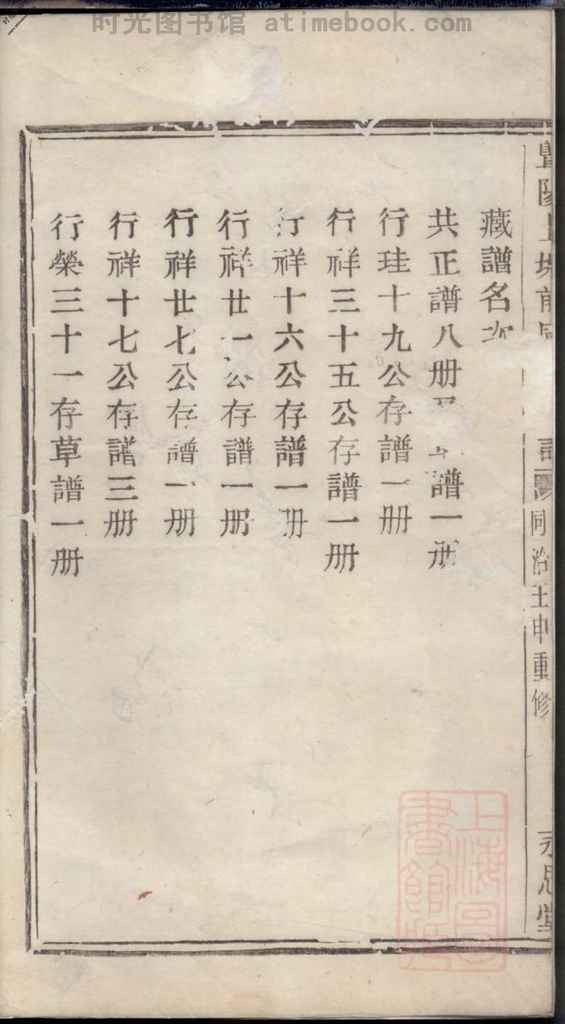 时光图书馆 atimebook.com
藏譜名次
共正譜八册草譜一册
行珪十九公存譜一册
行祥三十五公存譜一册
行祥十六公存譜一册
行祥廿一公存譜一册
行祥廿七公存譜一册
行祥十七公存譜三册
行榮三十一存草譜一册
暨陽上
同治壬申重修
永思堂
上海圖書館藏